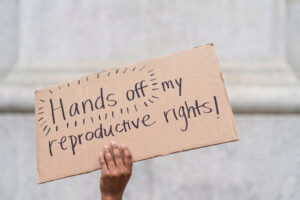 Hands off my
reproductive rights!